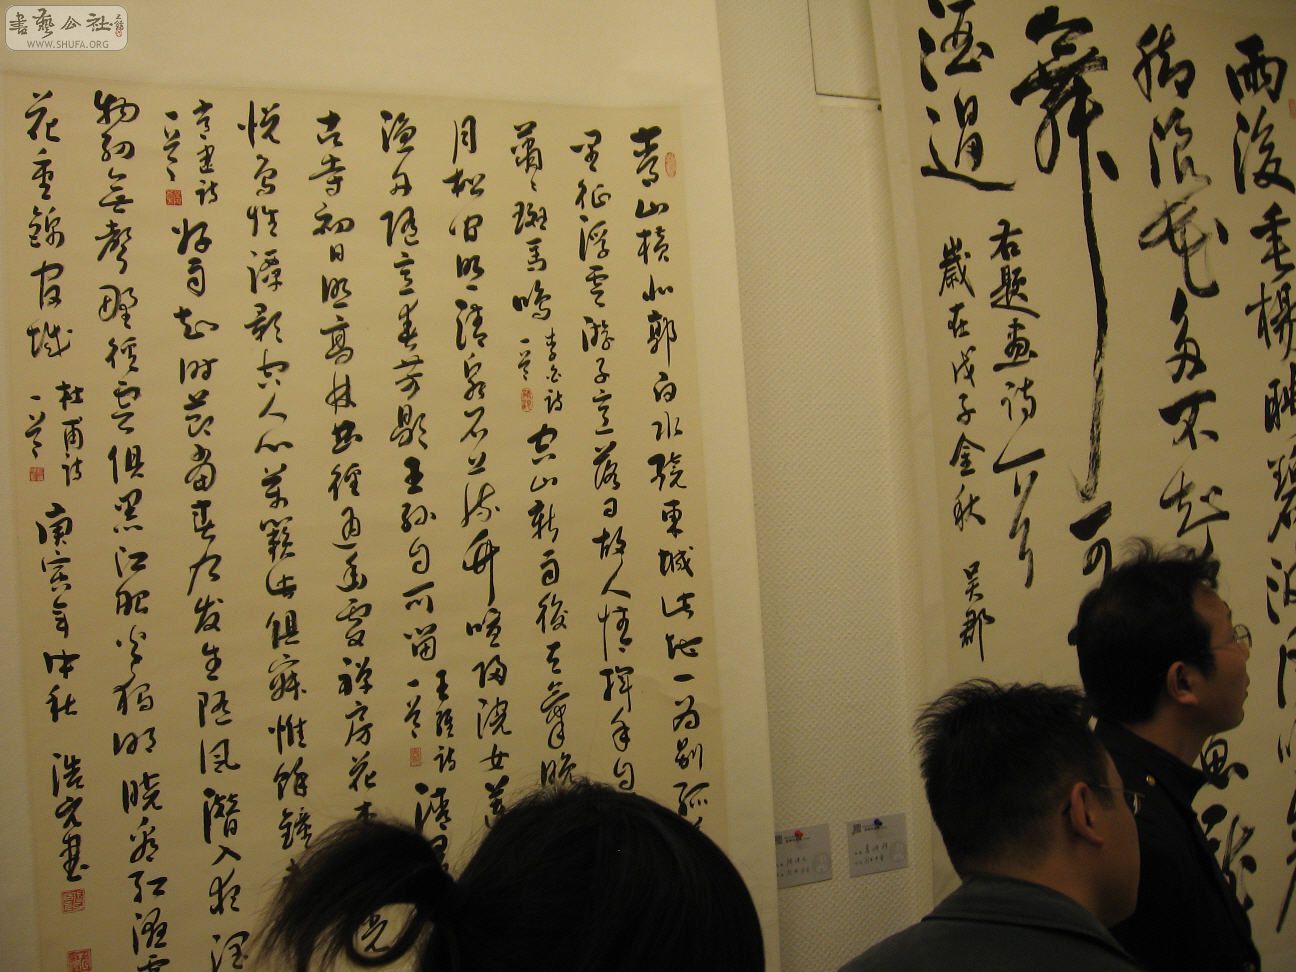 書藝公社
WWW.SHUFA.ORG
雨後垂楊映碧波
浪花多不起
舞可
酒過
右題畫詩一首
歲在戊子金秋 吴郡
青山横北郭白水繞東城此地一為别孤
里征浮雲游子意落日故人情揮手自
蕭、斑馬鳴 李白詩 一首 空山新雨後天氣晚
月松間照清泉石上流竹喧歸浣女蓮
漁舟随意春芳歇王孫自可留 王維詩 一首 清晨
古寺初日照高林曲徑通幽處禅房花木
悦鳥性潭影空人心萬籟此俱寂惟餘鐘
常建詩 一首 好雨知時節當春乃发生随風潛入夜潤
物細無聲野徑雲俱黑江船火獨明曉看紅濕處
花重錦官城 杜甫詩 一首 庚寅年中秋 浩文書